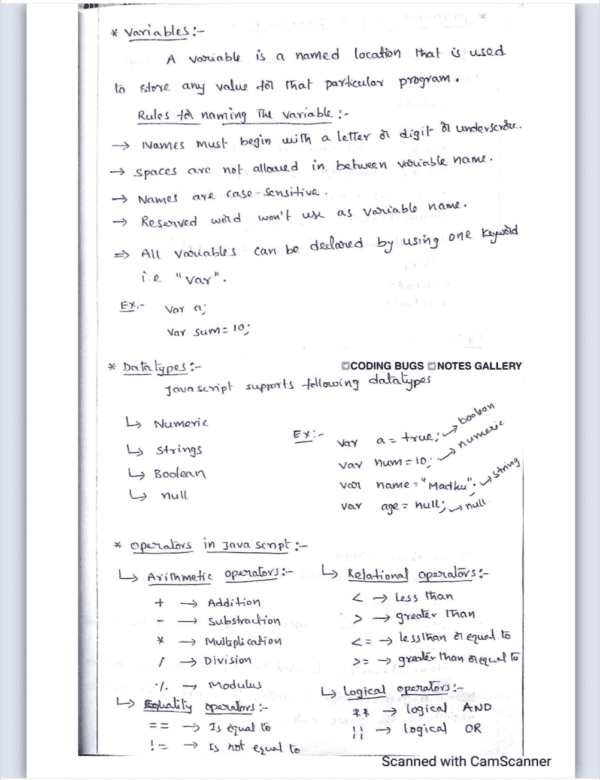 * Variables :-
A variable is a named location that is used
to store any value for that particular program.
Rules for naming The variable :-
→ Names must begin with a letter or digit or underscore.
→ spaces are not allowed in between variable name.
→ Names are case-sensitive.
→ Reserved word won't use as variable name.
⇒ All variables can be declared by using one keyword
i.e "var".
Ex:- var a;
var sum=10;
* Data types :-
CODING BUGS NOTES GALLERY
Java script supports following datatypes
↳ Numeric
↳ strings
↳ Boolean
↳ null
Ex:- var a = true; → boolean
var num = 10; → numeric
var name = "Madhu"; → string
var age = null; → null
* operators in Java script :-
↳ Arithmetic operators :-
+ → Addition
- → Substraction
* → Multiplication
/ → Division
% → Modulus
↳ Equality operators :-
== → Is equal to
!= → Is not equal to
↳ Relational operators :-
< → less than
> → greater than
<= → lessthan or equal to
>= → greater than or equal to
↳ Logical operators :-
&& → logical AND
|| → logical OR
Scanned with CamScanner